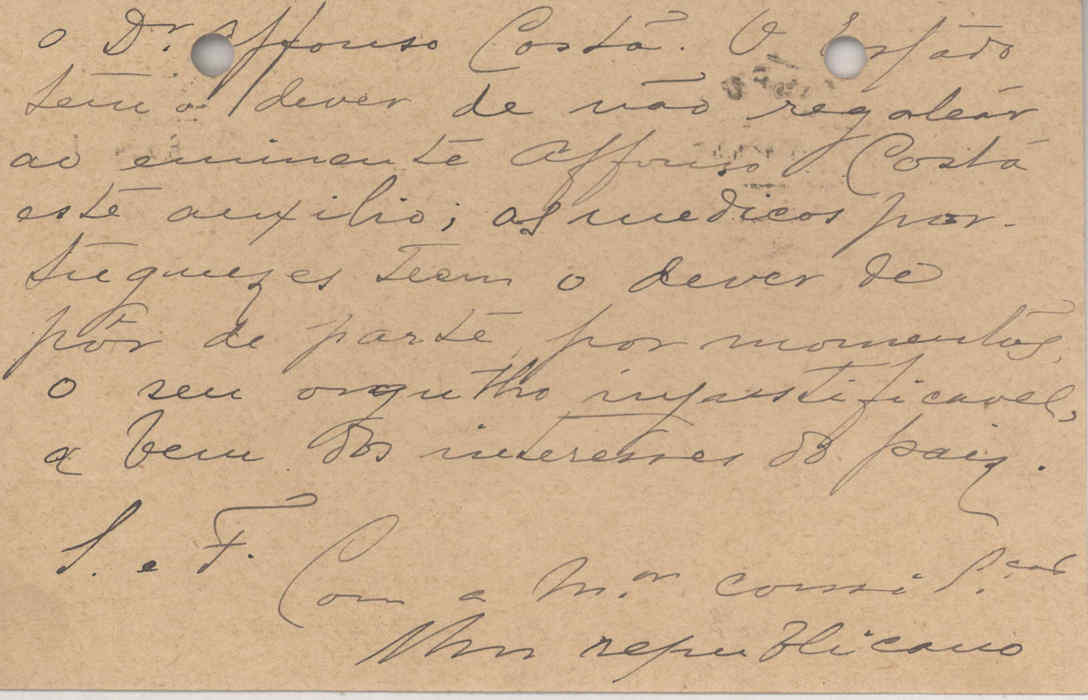 o Dr. Affonso Costa. O Estado
tem o dever de não regatear
ao eminente Affonso Costa
este auxilio; os medicos por-
tuguezes teem o dever de
pôr de parte, por momentos,
o seu orgulho injustificavel,
a bem dos interesses do paiz.
S. e F.
Com a M.or consid.
Um republicano